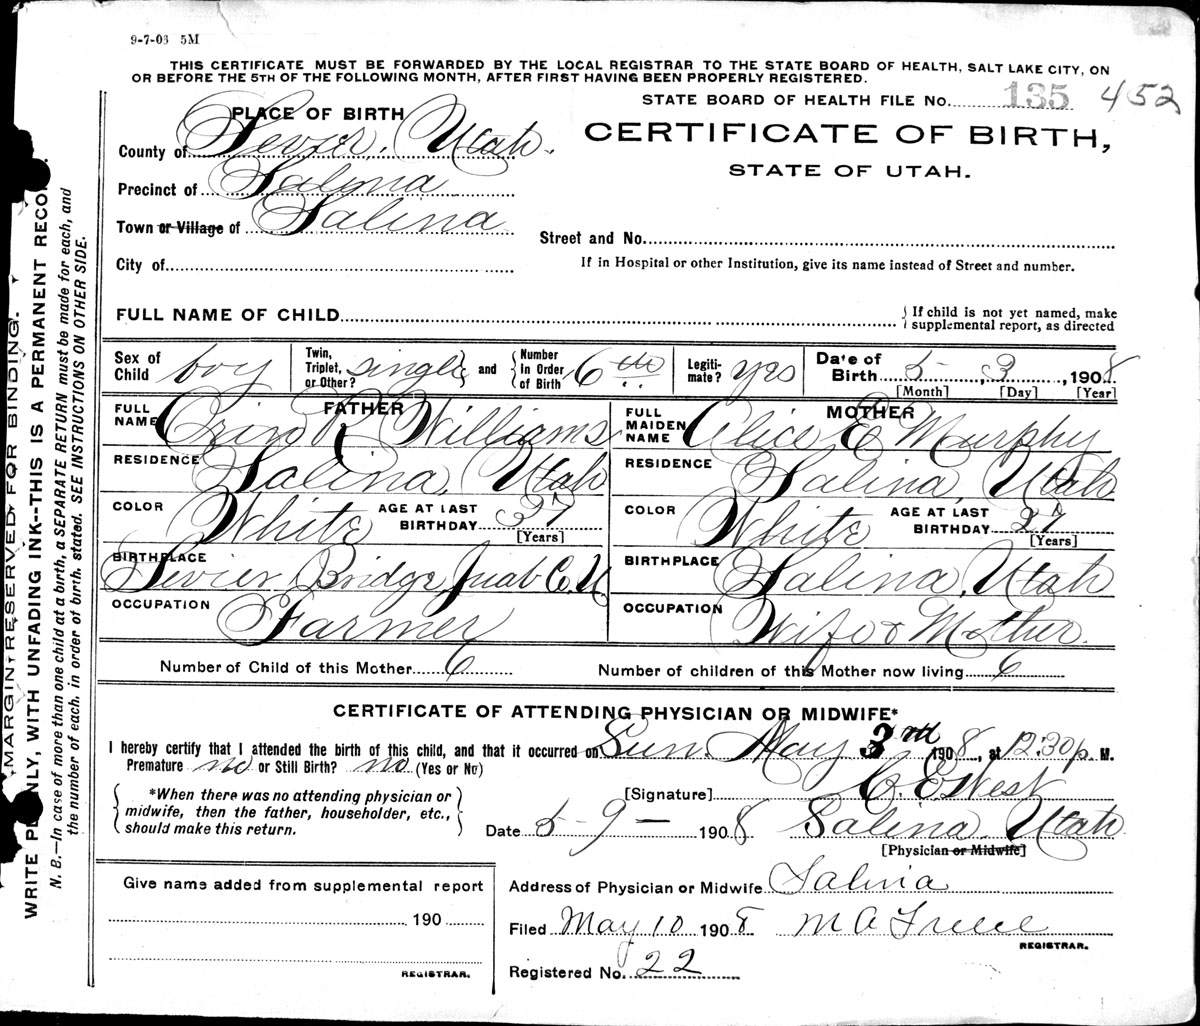 9-7-03 5M
THIS CERTIFICATE MUST BE FORWARDED BY THE LOCAL REGISTRAR TO THE STATE BOARD OF HEALTH, SALT LAKE CITY, ON
OR BEFORE THE 5TH OF THE FOLLOWING MONTH, AFTER FIRST HAVING BEEN PROPERLY REGISTERED.
STATE BOARD OF HEALTH FILE No. 135 452
PLACE OF BIRTH
CERTIFICATE OF BIRTH,
STATE OF UTAH.
County of Sevier, Utah.
Precinct of Salina
Town or Village of Salina
Street and No.
City of
If in Hospital or other Institution, give its name instead of Street and number.
FULL NAME OF CHILD
{ If child is not yet named, make
supplemental report, as directed
Sex of Child boy
Twin, Triplet, or Other? single and { Number In Order of Birth 6th
Legiti-mate? yes
Date of Birth 5- 3, 1908
[Month] [Day] [Year]
FATHER
FULL NAME R Williams
RESIDENCE Salina, Utah
COLOR White AGE AT LAST BIRTHDAY 37
[Years]
BIRTHPLACE Sevier Bridge Juab C. U
OCCUPATION Farmer
MOTHER
FULL MAIDEN NAME Alice E Murphy
RESIDENCE Salina, Utah
COLOR White AGE AT LAST BIRTHDAY 27
[Years]
BIRTHPLACE Salina, Utah
OCCUPATION Wife & Mother.
Number of Child of this Mother 6
Number of children of this Mother now living 6
CERTIFICATE OF ATTENDING PHYSICIAN OR MIDWIFE*
I hereby certify that I attended the birth of this child, and that it occurred on Sun. May 3rd 1908, at 12:30 p. M.
Premature no or Still Birth? no (Yes or No)
*When there was no attending physician or
midwife, then the father, householder, etc.,
should make this return.
[Signature] C. E. West
Date 5-9- 1908 Salina, Utah
[Physician or Midwife]
Give name added from supplemental report
190
REGISTRAR.
Address of Physician or Midwife Salina
Filed May 10 1908 M A
REGISTRAR.
Registered No. 22
MARGIN RESERVED FOR BINDING.
WRITE PLAINLY, WITH UNFADING INK--THIS IS A PERMANENT RECORD.
N. B.—In case of more than one child at a birth, a SEPARATE RETURN must be made for each, and
the number of each, in order of birth, stated. SEE INSTRUCTIONS ON OTHER SIDE.